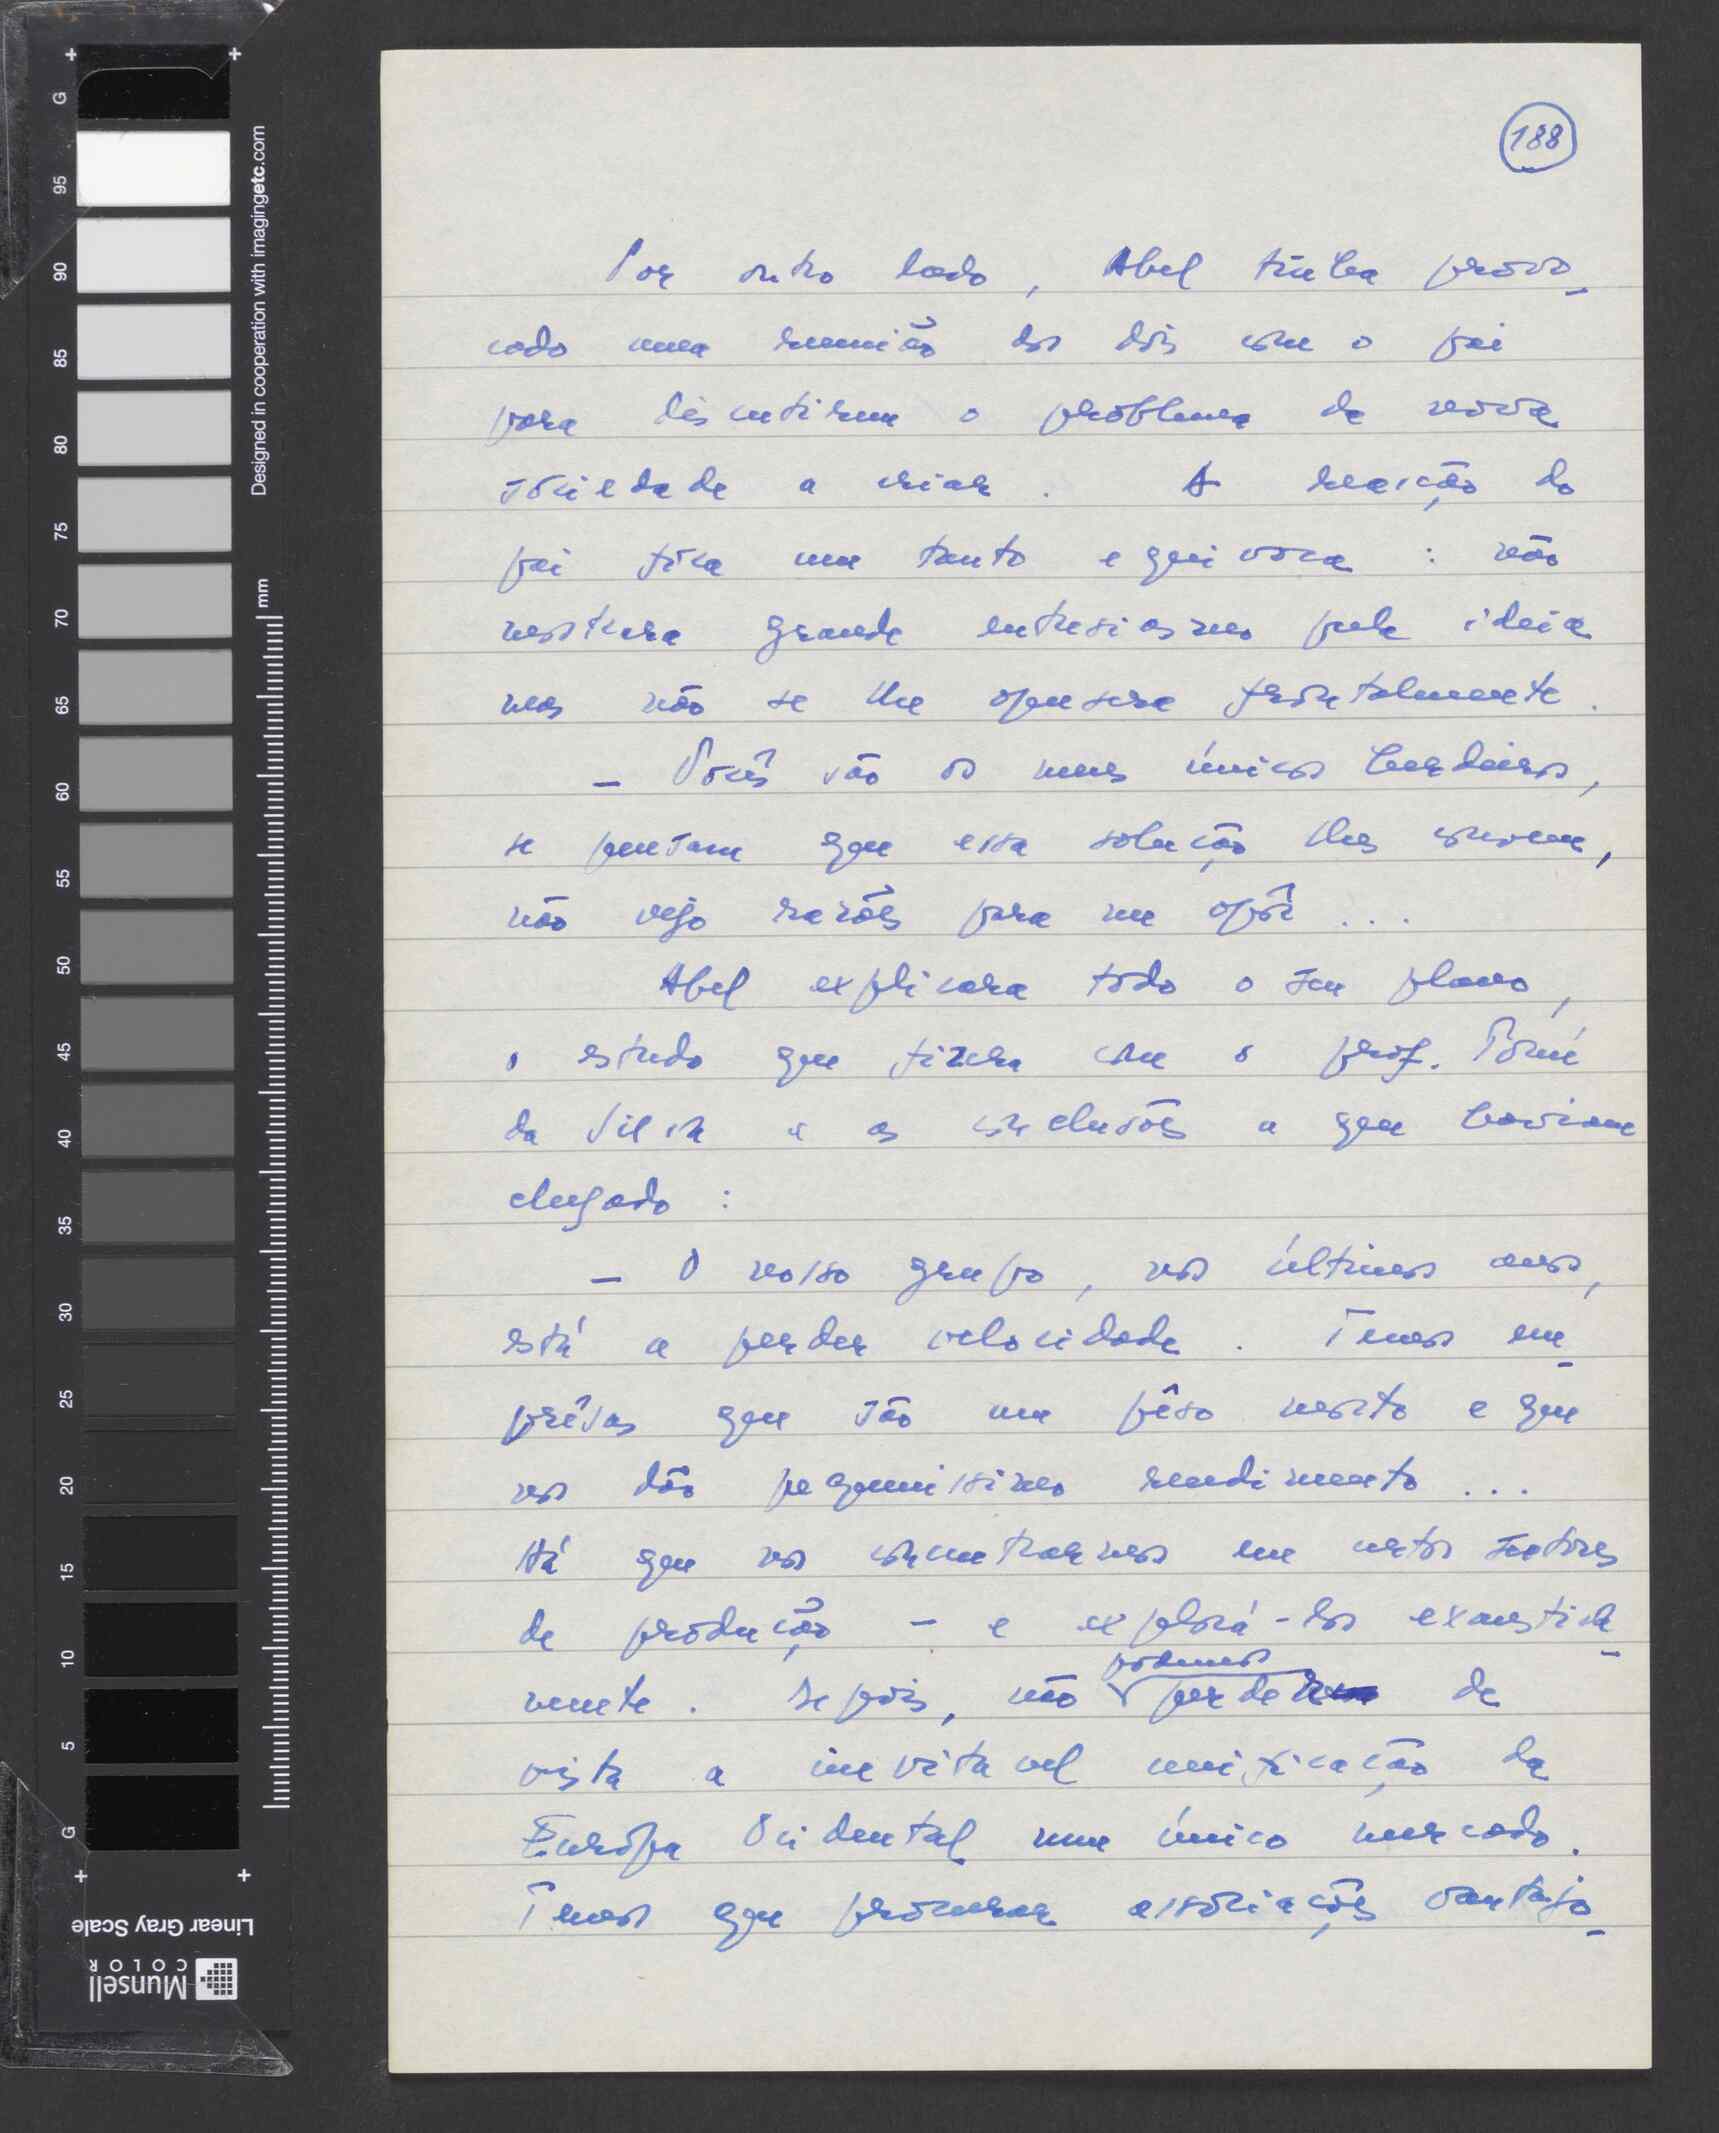 188
Por outro lado, Abel tinha provo-
cado uma reunião dos dois com o pai
para discutirem o problema da nova
sociedade a criar. A reacção do
pai fôra um tanto equivoca: não
mostrara grande entusiasmo pela ideia
mas não se lhe opusera frontalmente.
— Vocês são os meus únicos herdeiros,
se pensam que essa solução lhes convem,
não vejo razões para me opôr...
Abel explicara todo o seu plano,
o estudo que fizera com o prof. Tomé
da Silva e as conclusões a que haviam
chegado:
— O nosso grupo, nos últimos anos,
está a perder velocidade. Temos em-
prêsas que são um pêso morto e que
nos dão pequenissimo rendimento...
Há que nos concentrarmos em certos sectores
de produção — e explorá-los exaustiva-
podemos
mente. Depois, não perder de
vista a inevitavel unificação da
Europa Ocidental num único mercado.
Temos que procurar associações vantajo-
Designed in cooperation with imagingetc.com
mm
G
95
90
85
80
75
70
65
60
55
50
45
40
35
30
25
20
15
10
5
G
Linear Gray Scale
Munsell
COLOR